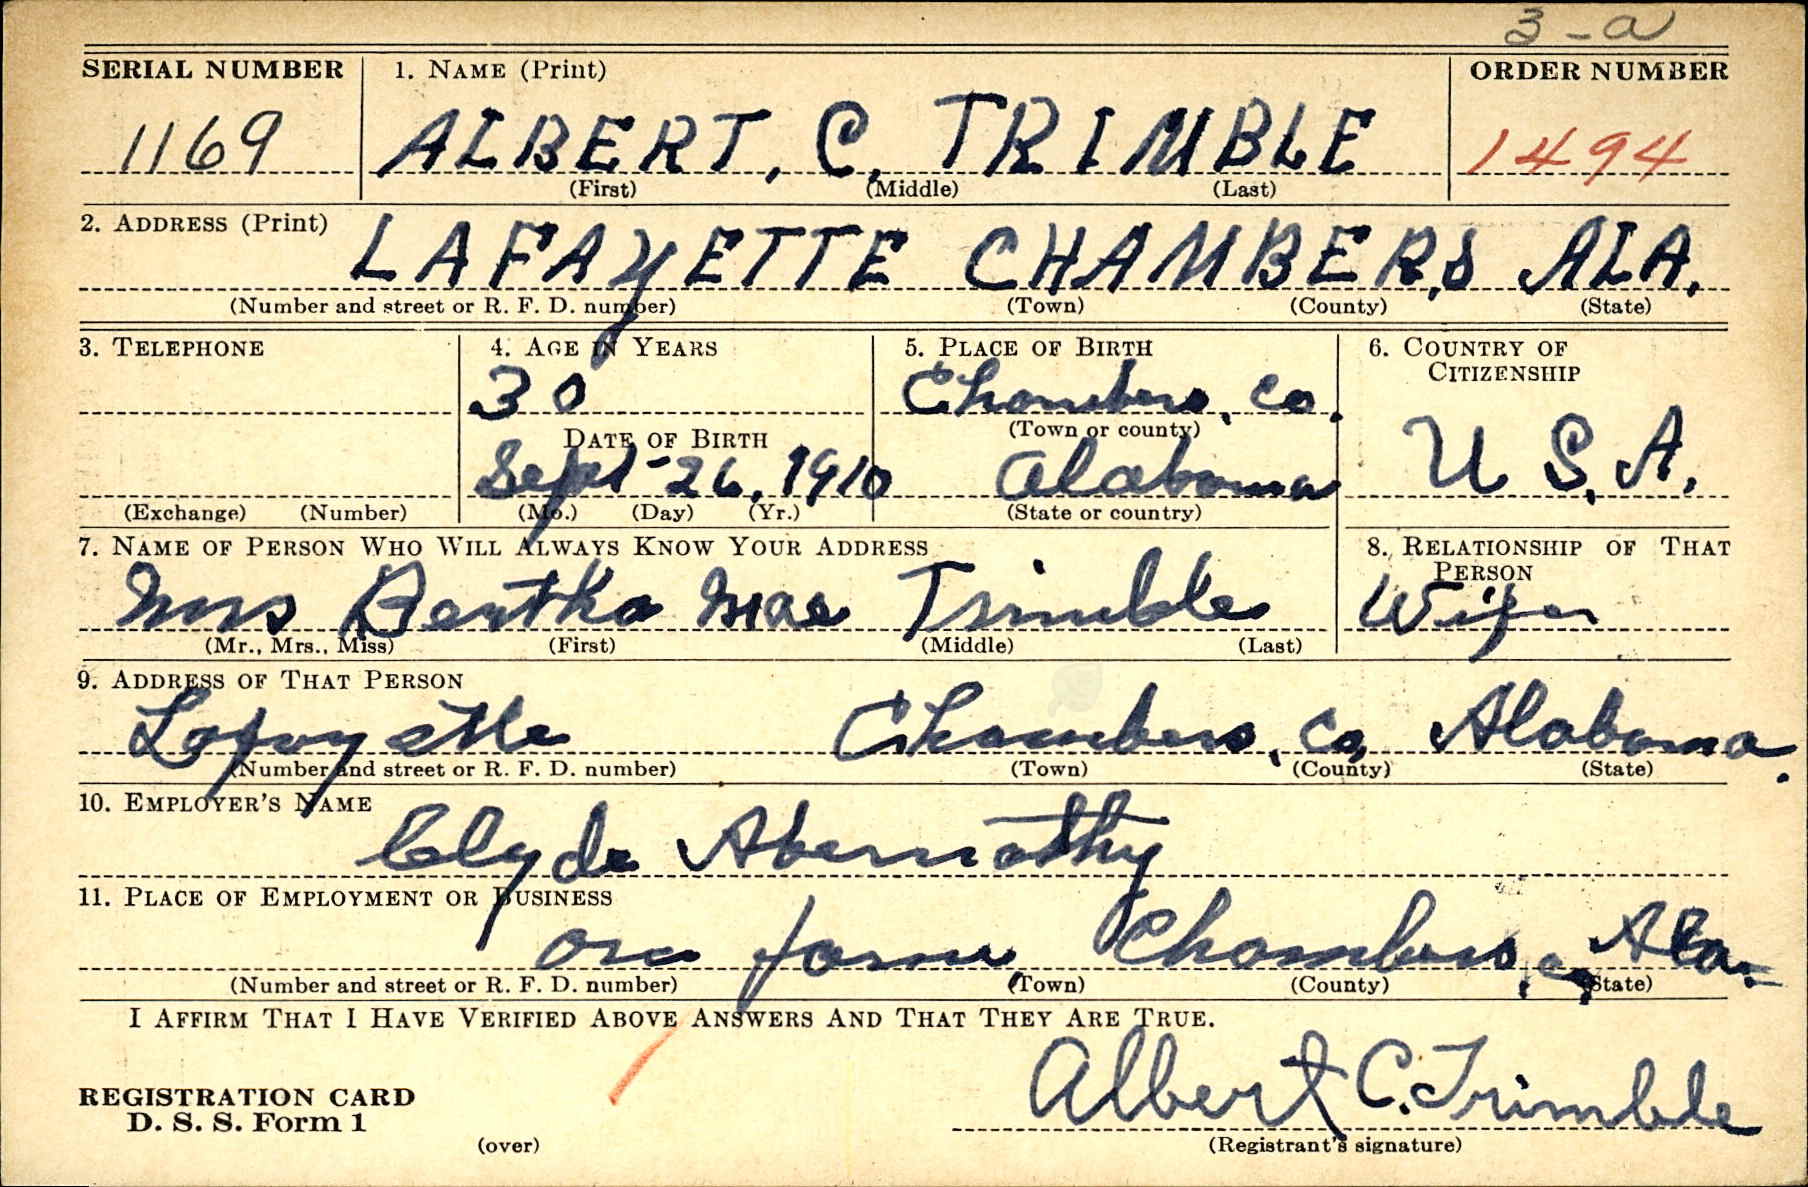 3-a
SERIAL NUMBER 1. NAME (Print) ORDER NUMBER
1169 ALBERT, C, TRIMBLE 1494
(First) (Middle) (Last)
2. ADDRESS (Print)
LAFAyETTE CHAMBERS ALA.
(Number and street or R. F. D. number) (Town) (County) (State)
3. TELEPHONE 4. AGE IN YEARS 5. PLACE OF BIRTH 6. COUNTRY OF CITIZENSHIP
30 Chambers, Co.
DATE OF BIRTH (Town or county)
Sept-26, 1910 Alabama U.S.A.
(Exchange) (Number) (Mo.) (Day) (Yr.) (State or country)
7. NAME OF PERSON WHO WILL ALWAYS KNOW YOUR ADDRESS 8. RELATIONSHIP OF THAT PERSON
Mrs Bertha Mae Trimble Wife
(Mr., Mrs., Miss) (First) (Middle) (Last)
9. ADDRESS OF THAT PERSON
Lafayette Chambers, Co, Alabama.
(Number and street or R. F. D. number) (Town) (County) (State)
10. EMPLOYER'S NAME
Clyde Abernathy
11. PLACE OF EMPLOYMENT OR BUSINESS
on farm, Chambers, Co, Ala.
(Number and street or R. F. D. number) (Town) (County) (State)
I AFFIRM THAT I HAVE VERIFIED ABOVE ANSWERS AND THAT THEY ARE TRUE.
REGISTRATION CARD
D. S. S. Form 1
Albert C. Trimble
(over) (Registrant's signature)